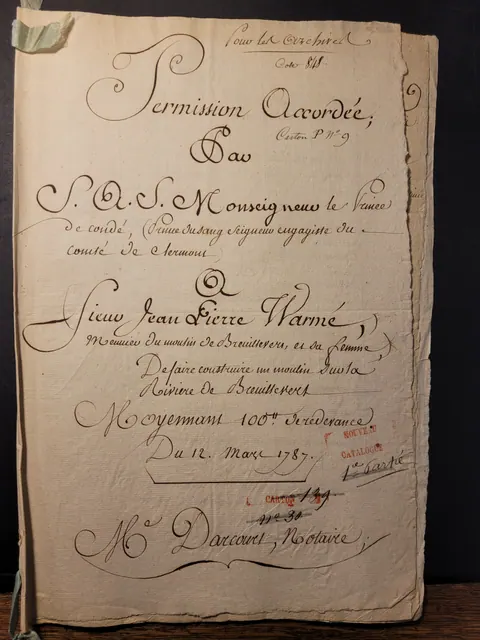 Pour les Archives
Cote 848.
Permission Accordée,
Carton P n.° 9
Par
S. A. S. Monseigneur le Prince
de Condé, Prince du sang Seigneur engagiste du
Comté de Clermont
A
Sieur Jean Pierre Warmé,
Meunier du moulin de Breuillevert, et sa femme,
De faire construire un moulin sur la
Rivière de Breuillevert
Moyennant 100.tt de redevance
Du 12. Mars 1787.
NOUVEAU
CATALOGUE
1re Partie
CARTON 139
n.° 31
Me Darcourt, Notaire,